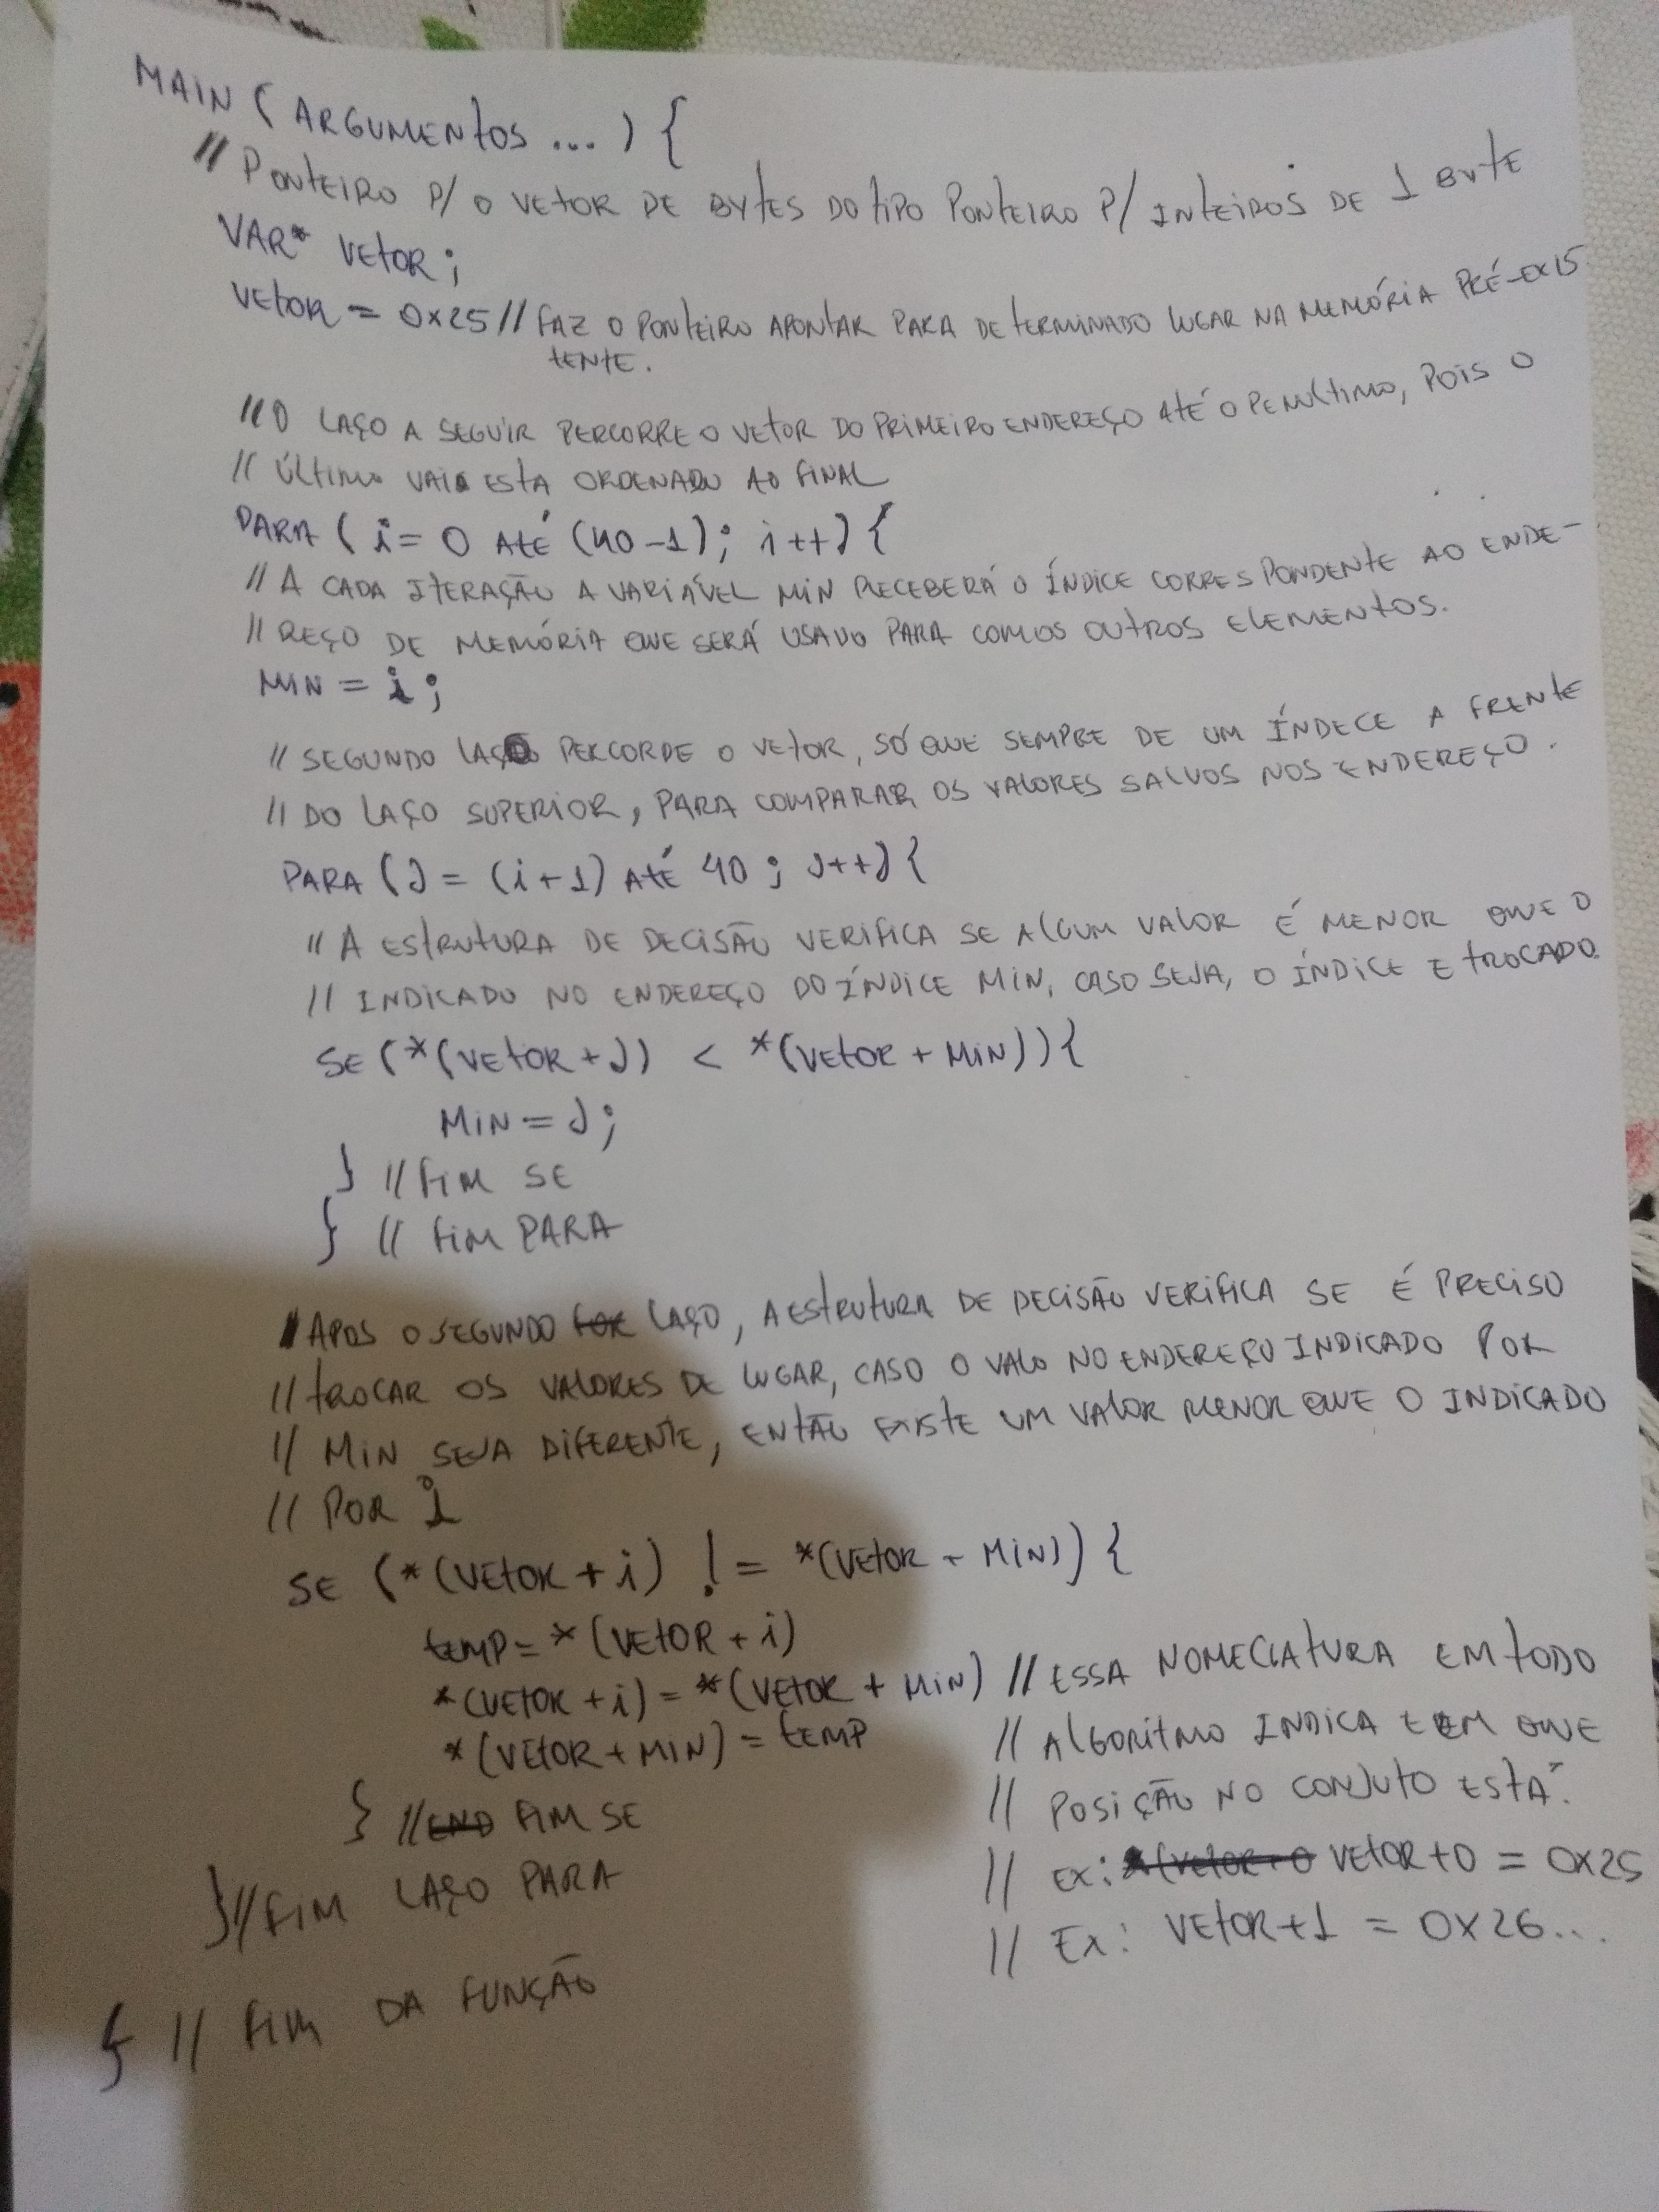 MAIN (ARGUMENTOS ... ) {
// PONTEIRO P/ O VETOR DE BYTES DO TIPO PONTEIRO P/ INTEIROS DE 1 BYTE
VAR* VETOR;
VETOR = 0x25 // FAZ O PONTEIRO APONTAR PARA DETERMINADO LUGAR NA MEMÓRIA PRÉ-EXIS
TENTE.
// O LAÇO A SEGUIR PERCORRE O VETOR DO PRIMEIRO ENDEREÇO ATÉ O PENULTIMO, POIS O
// ÚLTIMO VAI ESTA ORDENADO AO FINAL
PARA ( i = 0 ATÉ (40-1); i++) {
// A CADA ITERAÇÃO A VARIÁVEL MIN RECEBERÁ O ÍNDICE CORRESPONDENTE AO ENDE-
// REÇO DE MEMÓRIA QUE SERÁ USADO PARA COM OS OUTROS ELEMENTOS.
MIN = i;
// SEGUNDO LAÇO PERCORDE O VETOR, SÓ QUE SEMPRE DE UM ÍNDECE A FRENTE
// DO LAÇO SUPERIOR, PARA COMPARAR OS VALORES SALVOS NOS ENDEREÇO.
PARA (J = (i+1) ATÉ 40; J++) {
// A ESTRUTURA DE DECISÃO VERIFICA SE ALGUM VALOR É MENOR QUE O
// INDICADO NO ENDEREÇO DO ÍNDICE MIN, CASO SEJA, O ÍNDICE E TROCADO.
SE (*(VETOR + J) < *(VETOR + MIN)) {
MIN = J;
} // FIM SE
} // FIM PARA
// APOS O SEGUNDO FOR LAÇO, A ESTRUTURA DE DECISÃO VERIFICA SE É PRECISO
// TROCAR OS VALORES DE LUGAR, CASO O VALO NO ENDEREÇO INDICADO POR
// MIN SEJA DIFERENTE, ENTÃO EXISTE UM VALOR MENOR QUE O INDICADO
// POR i
SE (*(VETOR + i) != *(VETOR + MIN)) {
TEMP = *(VETOR + i)
*(VETOR + i) = *(VETOR + MIN) // ESSA NOMECLATURA EM TODO
*(VETOR + MIN) = TEMP // ALGORITMO INDICA EM QUE
// POSIÇÃO NO CONJUTO ESTÁ.
} // END FIM SE
// EX: *(VETOR+0 VETOR+0 = 0x25
} // FIM LAÇO PARA
// EX: VETOR+1 = 0x26...
} // FIM DA FUNÇÃO